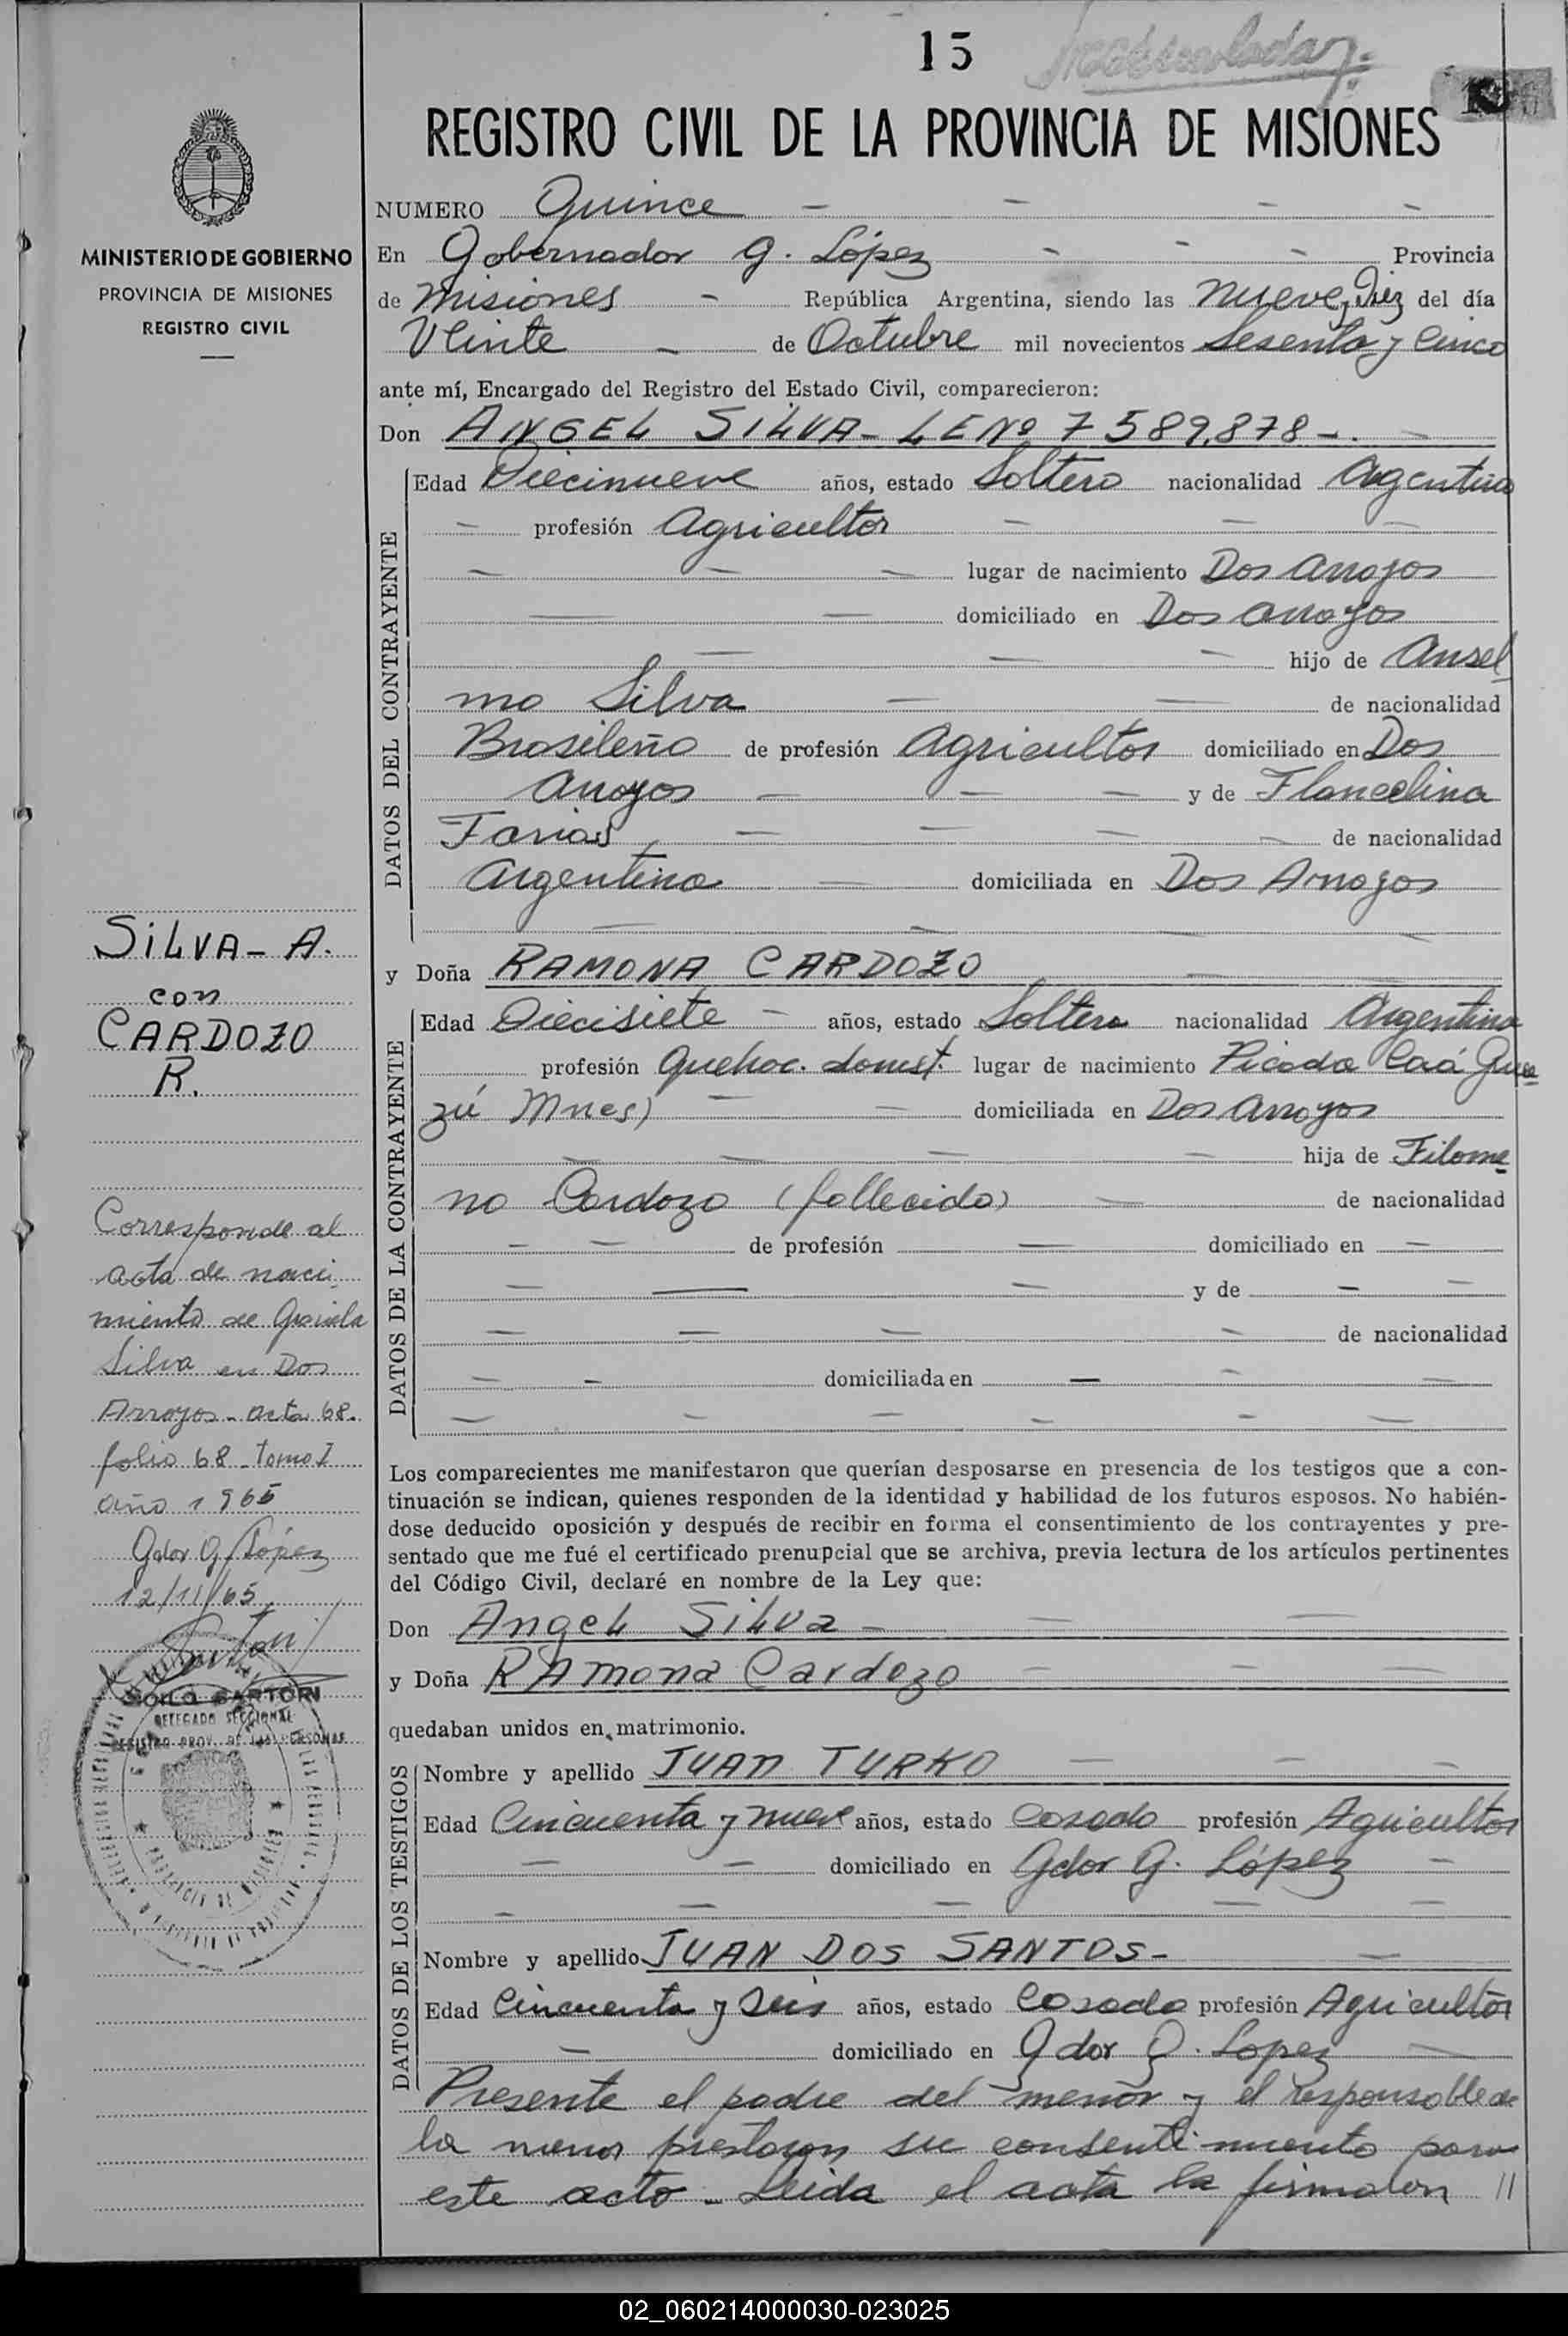 15
REGISTRO CIVIL DE LA PROVINCIA DE MISIONES
MINISTERIO DE GOBIERNO
PROVINCIA DE MISIONES
REGISTRO CIVIL
NUMERO Quince
En Gobernador G. López Provincia
de Misiones - República Argentina, siendo las nueve y Diez del día
Veinte - de Octubre mil novecientos Sesenta y Cinco
ante mí, Encargado del Registro del Estado Civil, comparecieron:
Don ANGEL SILVA - LE Nº 7589,878 -.
DATOS DEL CONTRAYENTE
Edad Diecinueve años, estado Soltero nacionalidad Argentino
profesión Agricultor
lugar de nacimiento Dos Arroyos
domiciliado en Dos Arroyos
hijo de Ansel
mo Silva de nacionalidad
Brasileño de profesión Agricultor domiciliado en Dos
Arroyos y de
Farias de nacionalidad
Argentina domiciliada en Dos Arroyos
y Doña RAMONA CARDOZO
DATOS DE LA CONTRAYENTE
Edad Diecisiete años, estado Soltera nacionalidad Argentina
profesión Quehac. domst. lugar de nacimiento Picada Caá Gua
zú Mnes) domiciliada en Dos Arroyos
hija de Filome
no Cardozo (fallecido) de nacionalidad
de profesión domiciliado en
y de
de nacionalidad
domiciliada en
Los comparecientes me manifestaron que querían desposarse en presencia de los testigos que a con-
tinuación se indican, quienes responden de la identidad y habilidad de los futuros esposos. No habién-
dose deducido oposición y después de recibir en forma el consentimiento de los contrayentes y pre-
sentado que me fué el certificado prenupcial que se archiva, previa lectura de los artículos pertinentes
del Código Civil, declaré en nombre de la Ley que:
Don Angel Silva -
y Doña Ramona Cardozo
quedaban unidos en matrimonio.
DATOS DE LOS TESTIGOS
Nombre y apellido JUAN TURKO
Edad Cincuenta y nueve años, estado Casado profesión Agricultor
domiciliado en Gdor G. López
Nombre y apellido JUAN DOS SANTOS -
Edad Cincuenta y seis años, estado Casado profesión Agricultor
domiciliado en Gdor G. Lopez
Presente el padre del menor y el responsable de
la menor prestaron su consentimiento para
este acto - Leida el acta la firmaron //
SILVA - A.
con
CARDOZO
R.
Corresponde al
acta de naci
miento de
Silva en Dos
Arroyos - acta 68.
folio 68 - tomo I
año 1965
Gdor G. López
12/11/65
SARTORI
DELEGADO SECCIONAL
REGISTRO PROV. DE LAS PERSONAS
02_060214000030-023025